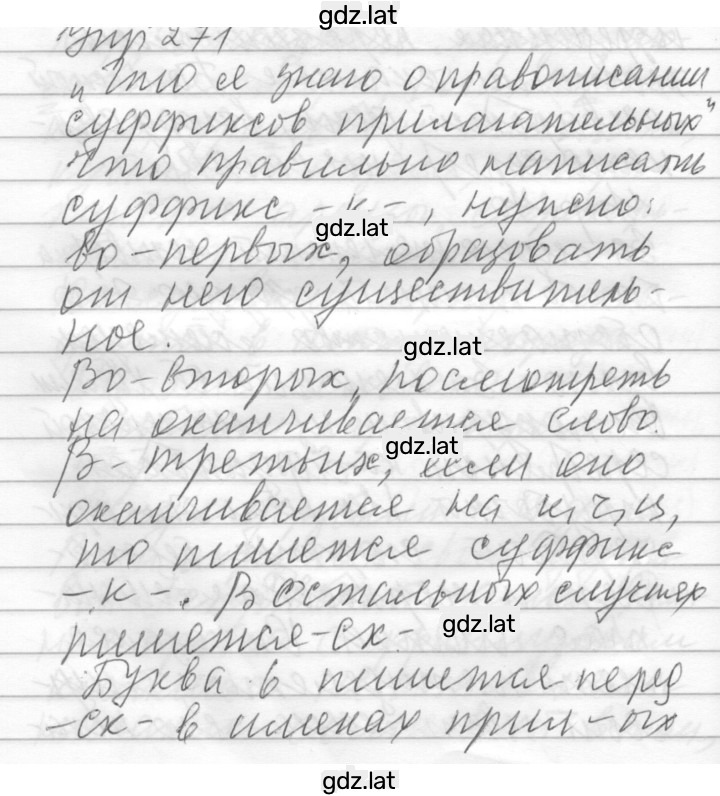 gdz.lat
Упр 271
„Что я знаю о правописании
суффиксов прилагательных"
Что правильно написать
суффикс -к-, нужно:
gdz.lat
Во-первых, образовать
от него существитель-
ное.
gdz.lat
Во-вторых, посмотреть
на оканчивается слово.
gdz.lat
В-третьих, если оно
оканчивается на к, ч, ц,
то пишется суффикс
-к-. В остальных случаях
gdz.lat
пишется -ск-
Буква ь пишется перед
-ск- в именах прил-ых
gdz.lat